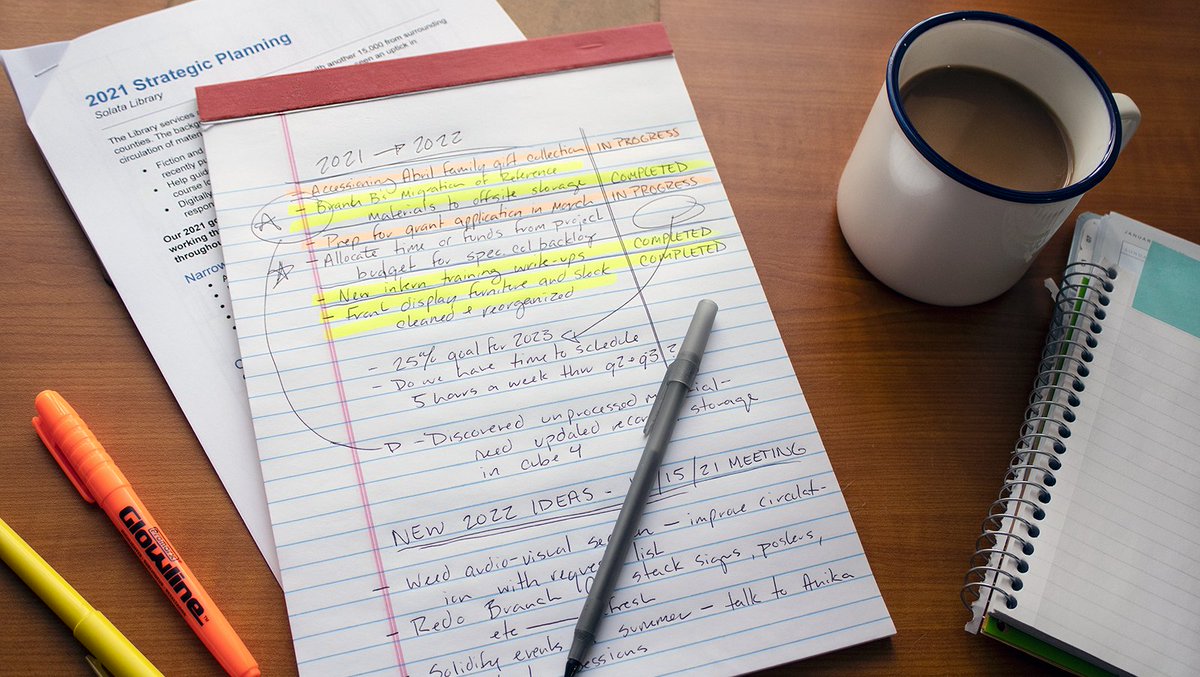 2021 Strategic Planning
Solata Library
with another 15,000 from surrounding
een an uptick in
The Library services
counties. The backg
circulation of mater
Fiction and
recently pu
Help guid
course lo
Digitally
respon
Our 2021 go
working th
throughou
Narrow
2021 → 2022
- Accessioning Abril family gift collection IN PROGRESS
- Branch B's Migration of Reference COMPLETED
Materials to offsite storage
- Prep for grant application in March IN PROGRESS
- Allocate time or funds from project
budget for spec. col backlog
- New intern training write-ups COMPLETED
- Front display furniture and stock COMPLETED
cleaned & reorganized
- 25% goal for 2023
- Do we have time to schedule
5 hours a week thru q2 & q3 ?
- Discovered unprocessed material -
need updated storage
in cube 4
NEW 2022 IDEAS - 15/21 MEETING
- Weed audio-visual - improve circulat-
ion with list
- Redo Branch stack signs, posters,
etc refresh
- Solidify events summer - talk to Anika
sessions
Glowline™
JANUARY